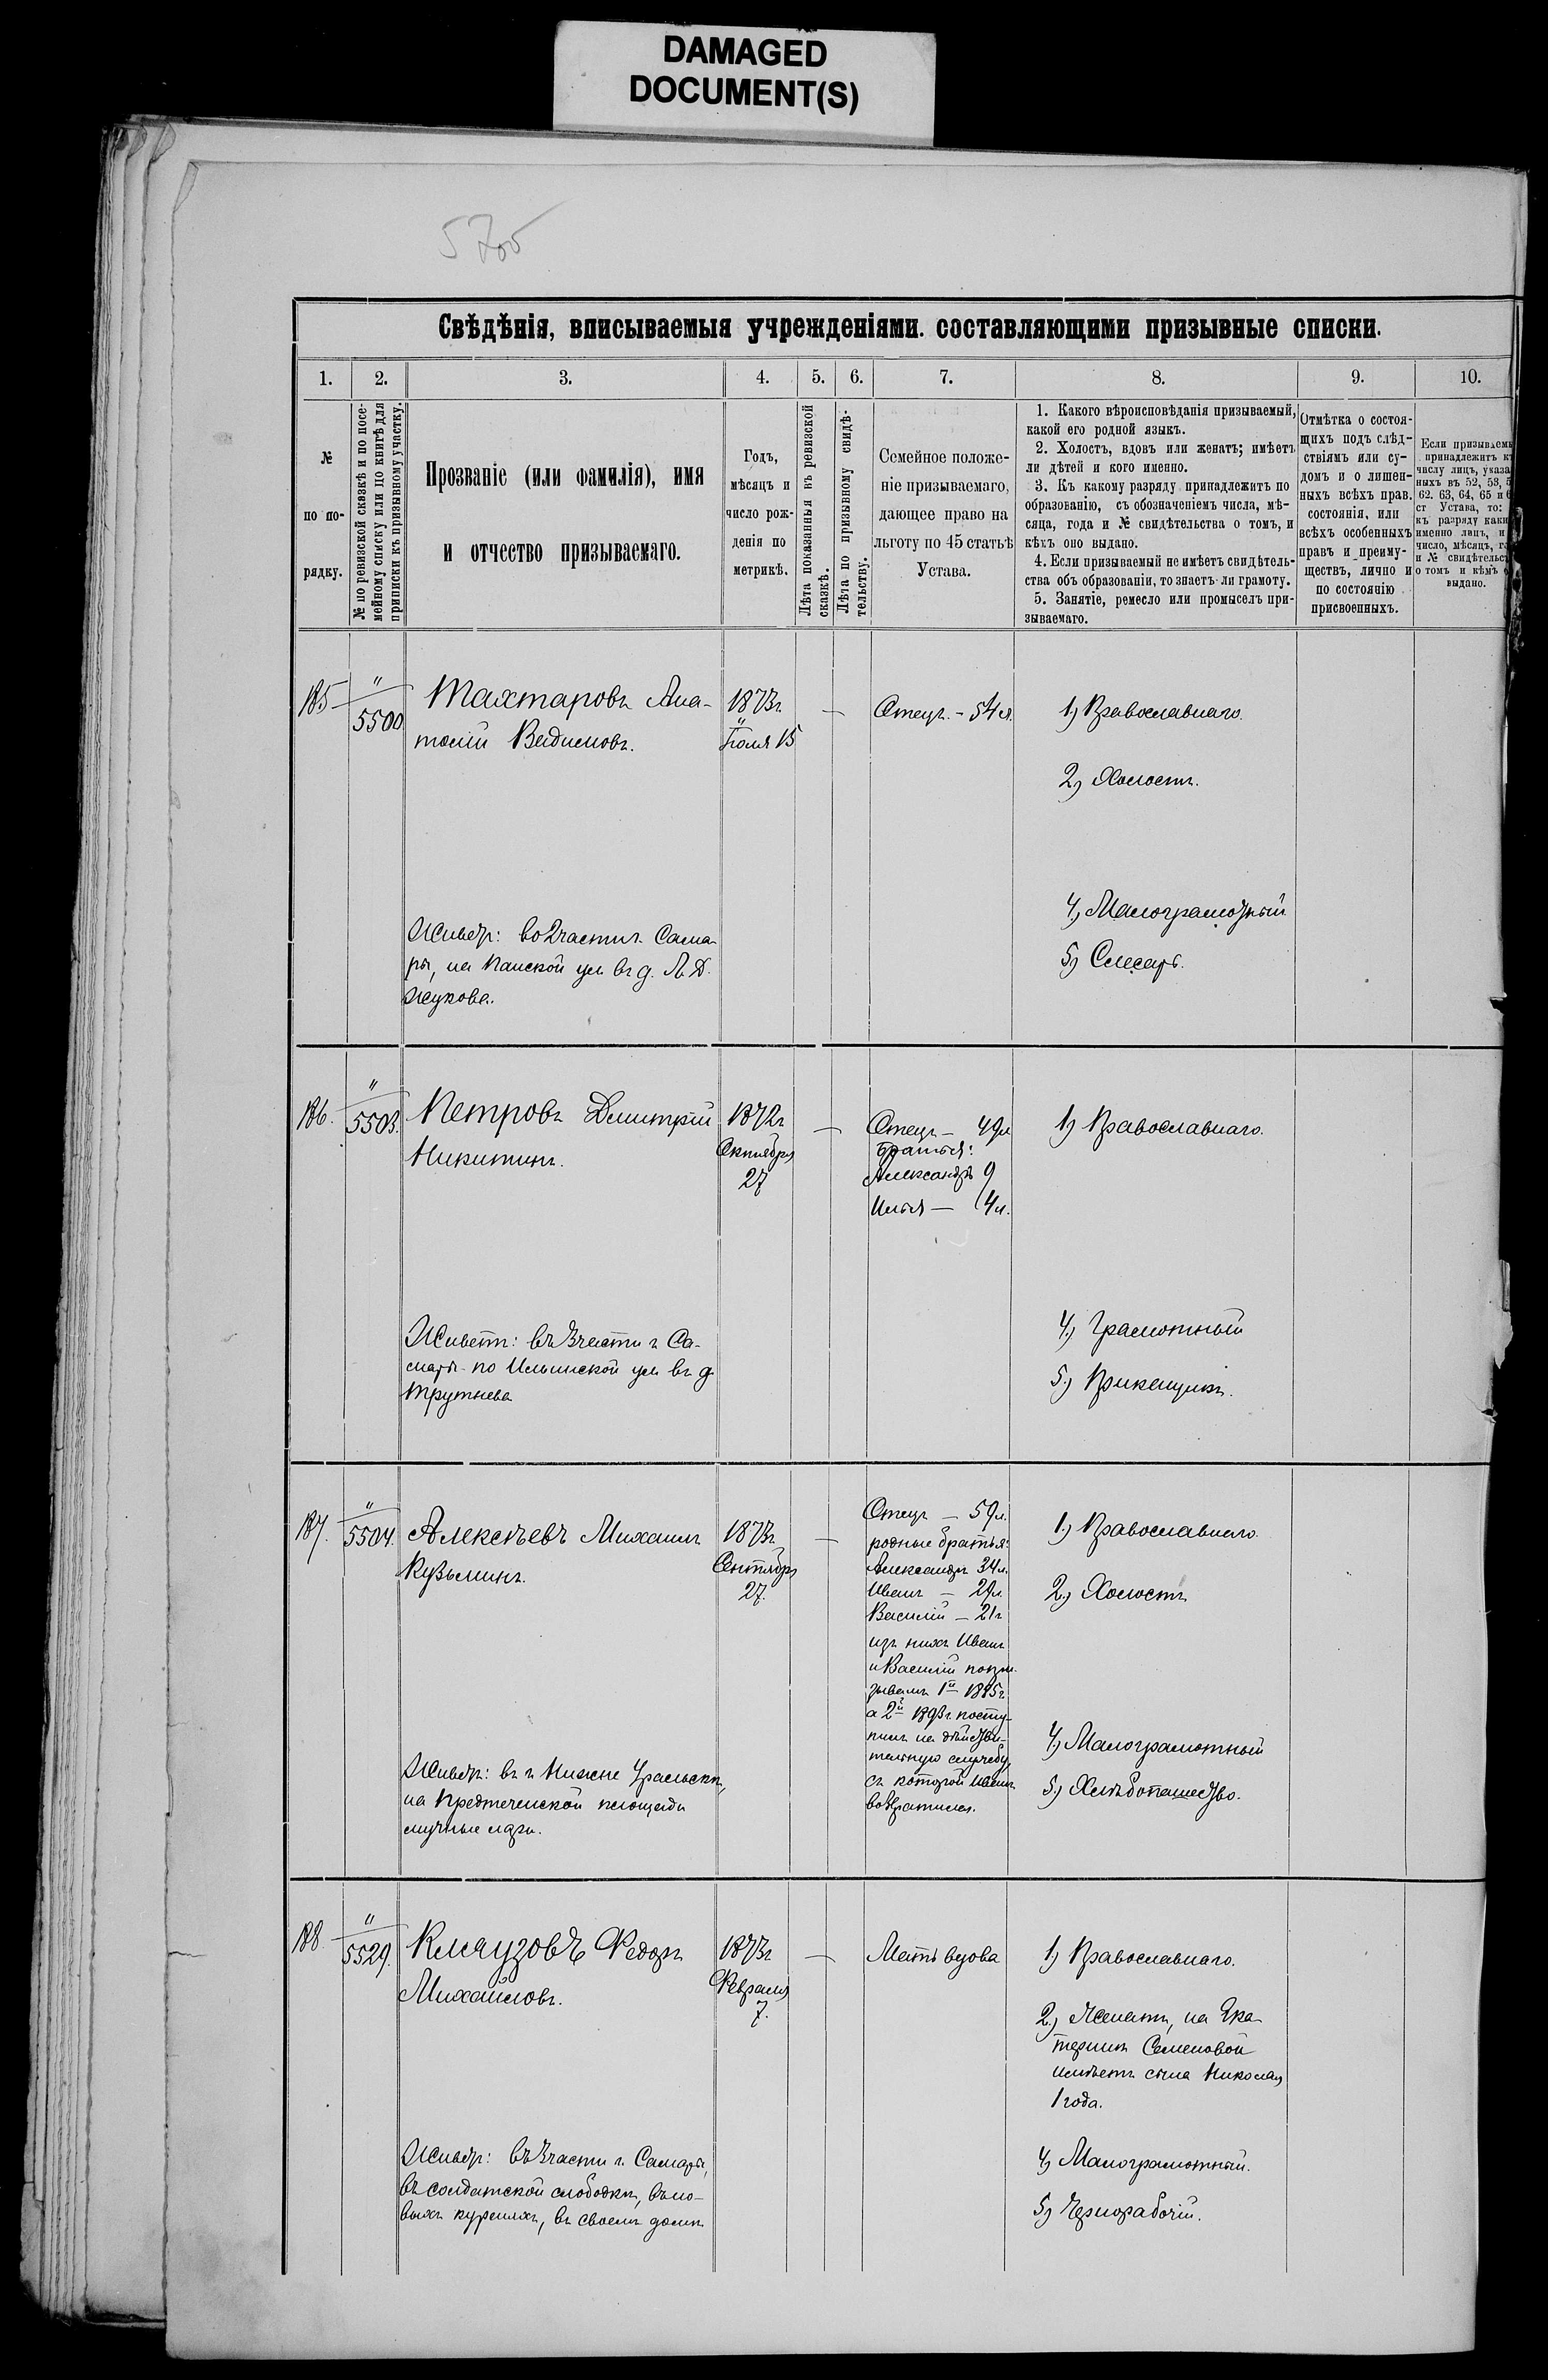 DAMAGED
DOCUMENT(S)
5700
Свѣдѣнія, вписываемыя учрежденіями. составляющими призывные списки.
1. 2. 3. 4. 5. 6. 7. 8. 9. 10.
№
по по-
рядку.
№ по ревизской сказкѣ и по посе-
мейному списку или по книгѣ для
приписки къ призывному участку.
Прозваніе (или фамилія), имя
и отчество призываемаго.
Годъ,
мѣсяцъ и
число рож-
денія по
метрикѣ.
Лѣта показанныя къ ревизской
сказкѣ.
Лѣта по призывному свидѣ-
тельству.
Семейное положе-
ніе призываемаго,
дающее право на
льготу по 45 статьѣ
Устава.
1. Какого вѣроисповѣданія призываемый,
какой его родной языкъ.
2. Холостъ, вдовъ или женатъ; имѣетъ
ли дѣтей и кого именно.
3. Къ какому разряду принадлежитъ по
образованію, съ обозначеніемъ числа, мѣ-
сяца, года и № свидѣтельства о томъ, и
кѣмъ оно выдано.
4. Если призываемый не имѣетъ свидѣтель-
ства объ образованіи, то знаетъ-ли грамоту.
5. Занятіе, ремесло или промыселъ при-
зываемаго.
Отмѣтка о состоя-
щихъ подъ слѣд-
ствіямъ или су-
домъ и о лишен-
ныхъ всѣхъ прав.
состоянія, или
всѣхъ особенныхъ
правъ и преиму-
ществъ, лично и
по состоянію
присвоенныхъ.
Если призываемы
принадлежитъ къ
числу лицъ, указа
ныхъ въ 52, 53, 5
62. 63, 64, 65 и 6
ст Устава, то:
къ разряду каки
именно лицъ, и
число, мѣсяцъ, г
и № свидѣтельст
о томъ и кѣмъ
выдано.
185
"
5500
Тахтаровъ Ана-
толій Вадимовъ.
1873г.
"
Іюля 15
—
Отецъ. – 54 л.
1) Православнаго.
2) Холостъ.
4) Малограмотный
5) Слесарь.
Живетъ: во 2 части г. Сама-
ры, на Панской ул въ д. Л. Д.
Жукова.
186.
"
5503.
Петровъ Дмитрій
Никитинъ.
1872г
Октября
27
—
Отецъ – 49 л
Братья:
Александръ 9
Илья — 4 л.
1) Православнаго.
4) Грамотный
5.) Прикащикъ.
Живетъ: въ 3 части г Са-
мары по Ильинской ул въ д
Трутнева
187.
"
5504.
Алексѣевъ Михаилъ
Кузьминъ.
1873г
Сентября
27.
—
Отецъ — 59 л.
родные братья:
Александръ 34 л.
Иванъ — 29 л.
Василій — 21 г
изъ нихъ Иванъ
и Василій
1й 1885г
а 2й 1893г посту-
пилъ на дѣйстви-
тельную службу,
съ которой Иванъ
возвратился.
1.) Православнаго.
2.) Холостъ
4.) Малограмотный
5.) Хлѣбопашество.
Живетъ: въ г Нижне Уральскѣ,
на Предтеченской площади
мучные лари.
188
"
5529.
Кмяузовъ Федоръ
Михайловъ.
1873г
Февраля
7.
—
Мать вдова
1) Православнаго.
2.) Женатъ, на Ека-
теринѣ Семеновой
имѣетъ сына Николая
1 года.
4) Малограмотный.
5) Чернорабочій.
Живетъ: въ 3 части г. Самары,
въ солдатской слободкѣ, въ но-
выхъ куреняхъ, въ своемъ домѣ